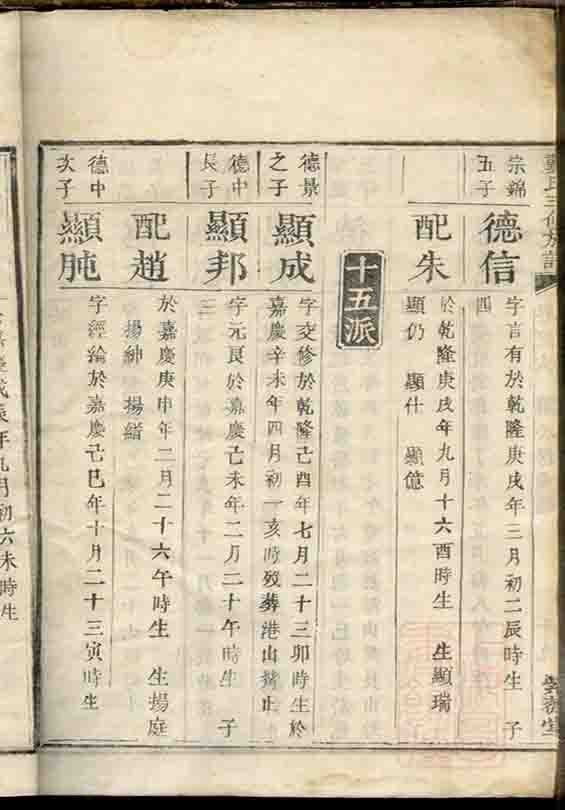 宗錦五子
德信
字言有於乾隆庚戌年三月初二辰時生 子
四
配朱
於乾隆庚戌年九月十六酉時生 生顯瑞
顯仍 顯仕 顯億
十五派
德景之子
顯成
字交修於乾隆己酉年七月二十三卯時生於
嘉慶辛未年四月初一亥時歿葬港山
德中長子
顯邦
字元良於嘉慶己未年二月二十午時生 子
二
配趙
於嘉慶庚申年二月二十六午時生 生揚庭
揚紳 揚緒
德中次子
顯肫
字經綸於嘉慶己巳年十月二十三寅時生
戊辰年九月初六未時生